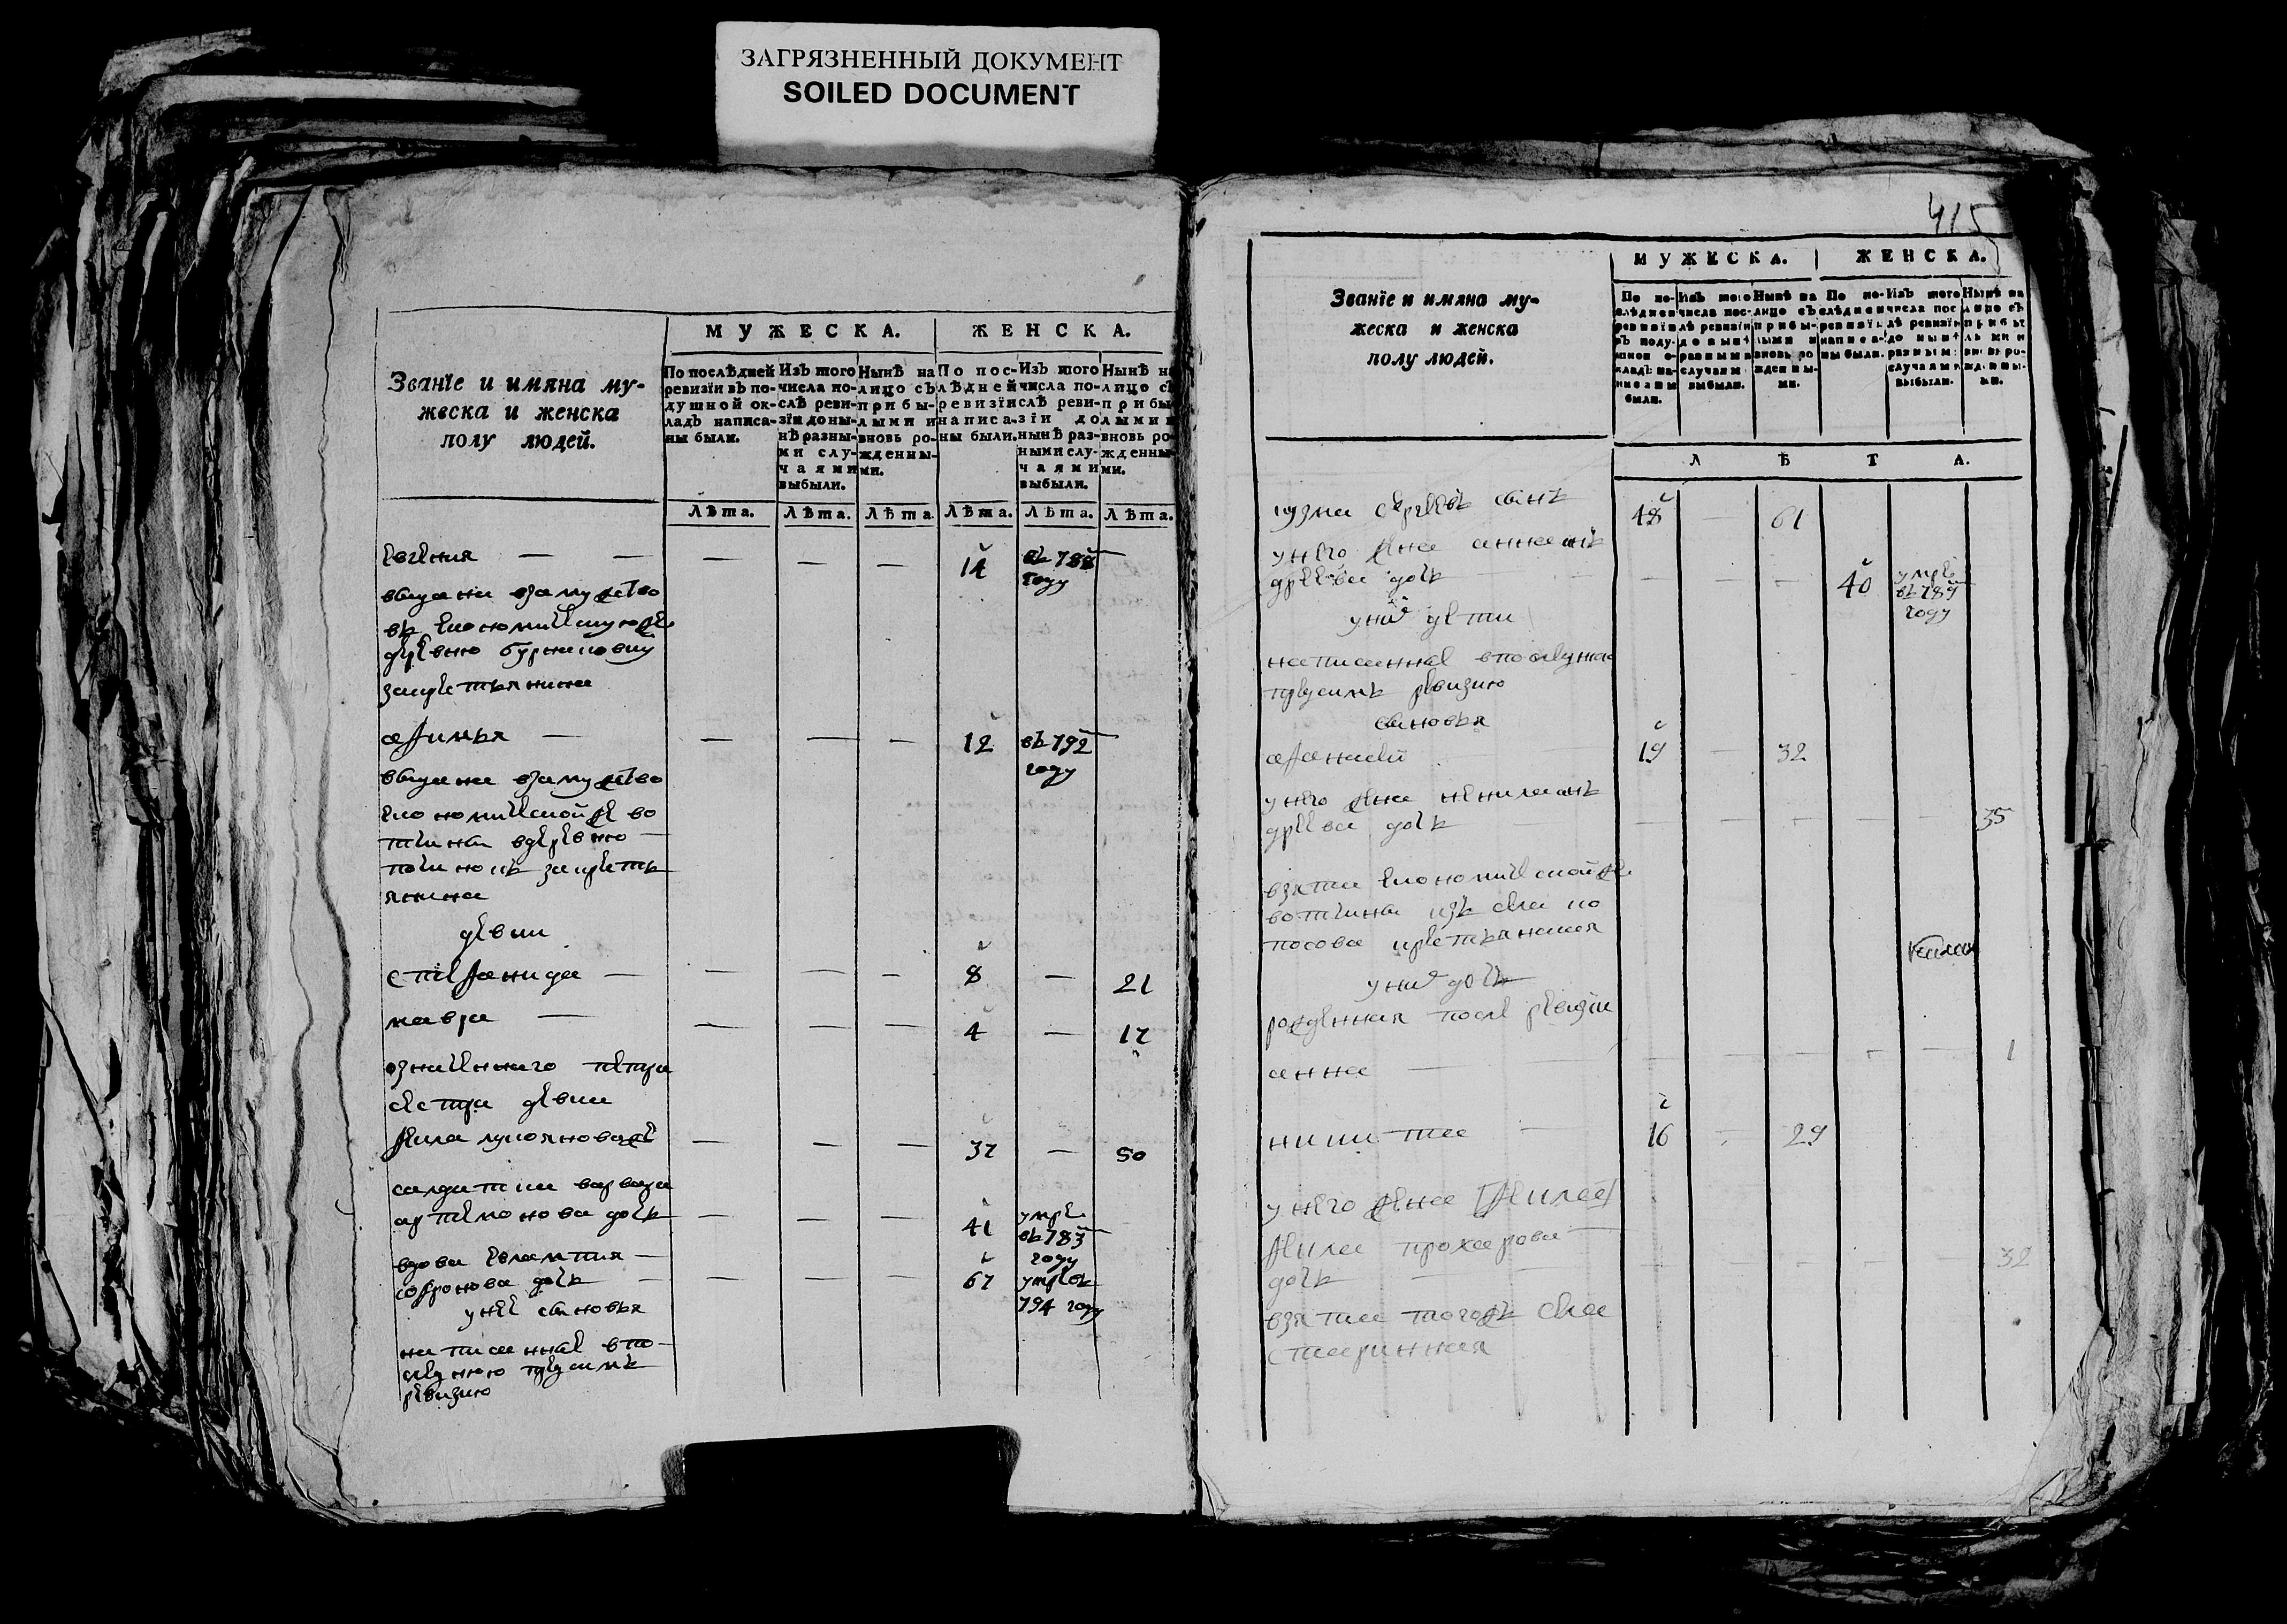 ЗАГРЯЗНЕННЫЙ ДОКУМЕНТ
SOILED DOCUMENT
Званїе и имяна му-
жеска и женска
полу людей.
МУЖЕСКА.
ЖЕНСКА.
По послѣдней ревизїи въ по-душной ок-ладъ написа-ны были.
Изъ того числа по-слѣ реви-зїи до ны-нѣ разны-ми слу-чаями выбыли.
Нынѣ на лицо съ прибы-лыми и вновь ро-жденны-ми.
По пос-лѣдней ревизїи написа-ны были.
Изъ того числа по-слѣ реви-зїи до нынѣ раз-ными слу-чаями выбыли.
Нынѣ на лицо съ прибы-лыми и вновь ро-жденны-ми.
Лѣта. Лѣта. Лѣта. Лѣта. Лѣта. Лѣта.
евгения — — — — — 14 въ 788 году
выдана взамужство
въ економическуюже
деревню
закрестьянина
афимья — — — — 12 въ 792 году
выдана взамужство
економическойже во
тчины вдеревню
починокъ закресть
янина
девки
степанида — — — — 8 — 21
мавра — — — — 4 — 17
означенного петра
сестра девка
акилина — — — 37 — 50
салдатка варвара
артемонова дочь — — — 41 умре въ 783 году
вдова евлампия —
софронова дочь — — — — 67 умре въ 794 году
унее сыновья
написанныя впо
следнюю предсимъ
ревизию
415
Званїе и имяна му-
жеска и женска
полу людей.
МУЖЕСКА.
ЖЕНСКА.
По по-слѣдней ревизїи въ поду-шной о-кладъ на-писаны были.
Изъ того числа пос-лѣ ревизїи до нынѣ разными случаями выбыли.
Нынѣ на лицо съ прибы-лыми и вновь ро-жденны-ми.
По по-слѣдней ревизїи написа-ны были.
Изъ того числа пос-лѣ ревизїи до нынѣ разными случаями выбыли.
Нынѣ на лицо съ прибы-лыми и вновь ро-жденны-ми.
ЛѢТА.
кузма сергеевъ сынъ 48 — 61
унего жена анна
дреева дочь — — — 40 умре въ 789 году
уних дети
написанныя впоследнюю
предсимъ ревизию
сыновья
афанасей 19 — 32
унего жена
дреева дочь — — — — — — 35
взята економическойже
вотчины изъ села ко
посова крестьянская
уних дочь
рожденная после ревизи
анна — — — — — — 1
никита — 16 — 29
унего жена
прохарова —
дочь — — — — — — 32
взята тогожъ села
старинная